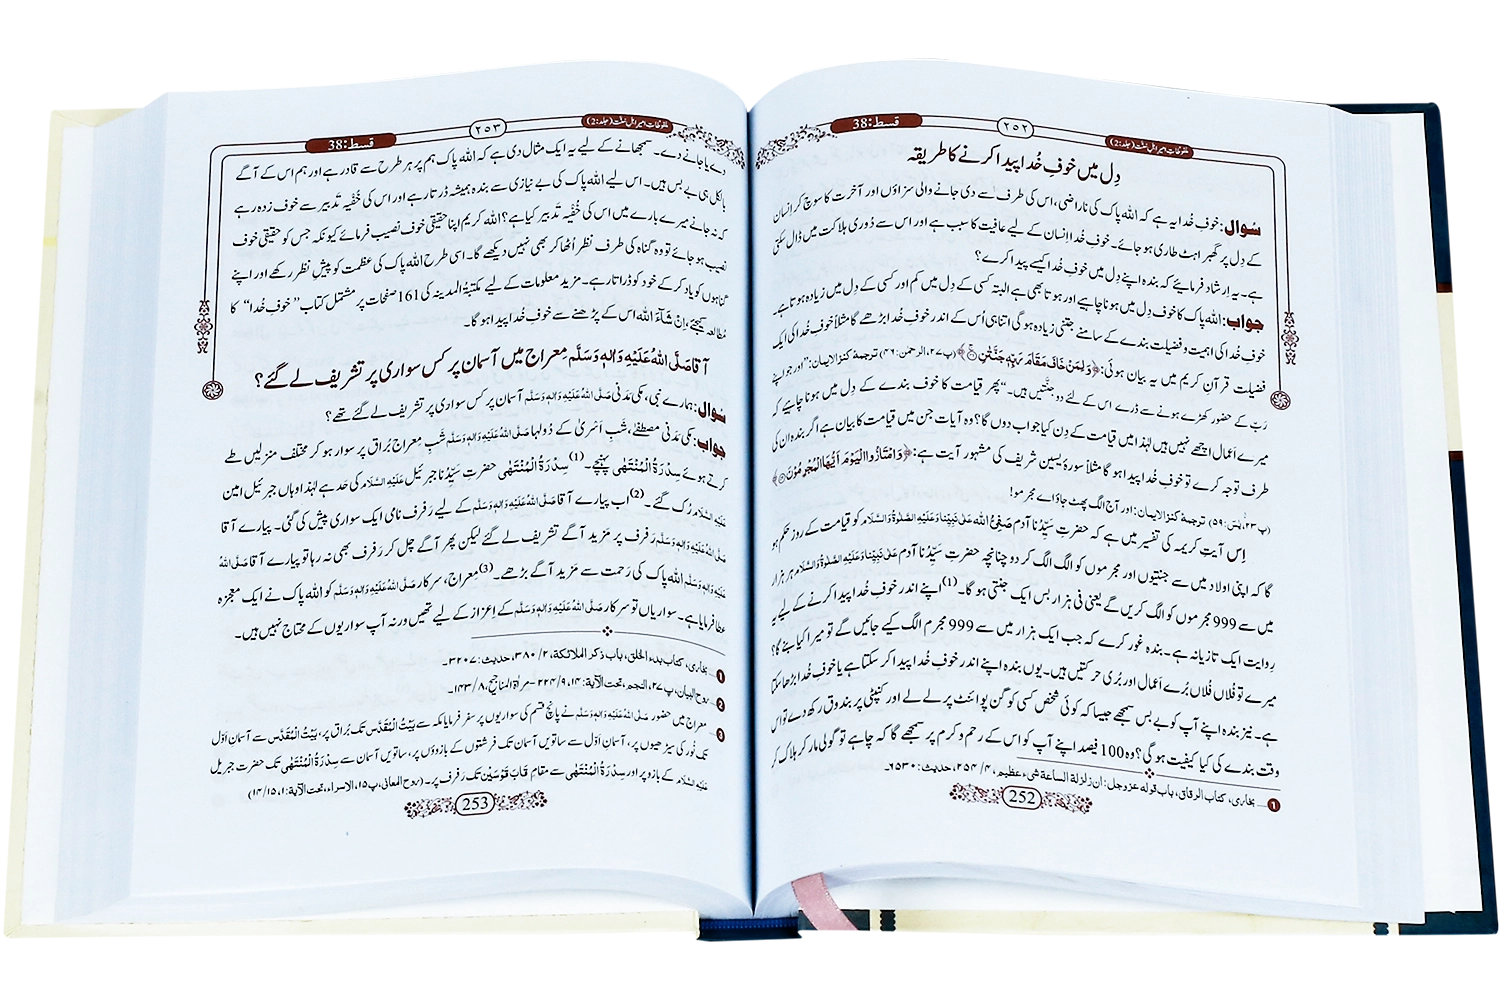 ملفوظاتِ امیرِ اہلِ سنّت (جلد:2)
۲۵۲
قسط:38
دِل میں خوفِ خُدا پیدا کرنے کا طریقہ
سُوال: خوفِ خُدا یہ ہے کہ اللہ پاک کی ناراضی، اس کی طرف سے دی جانے والی سزاؤں اور آخرت کا سوچ کر اِنسان
کے دِل پر گھبراہٹ طاری ہو جائے۔ خوفِ خُدا اِنسان کے لیے عافیت کا سبب ہے اور اس سے دُوری ہلاکت میں ڈال سکتی
ہے۔ یہ اِرشاد فرمائیے کہ بندہ اپنے دِل میں خوفِ خُدا کیسے پیدا کرے؟
جواب: اللہ پاک کا خوف دِل میں ہونا چاہیے اور ہوتا بھی ہے البتہ کسی کے دِل میں کم اور کسی کے دِل میں زیادہ ہوتا ہے۔
خوفِ خُدا کی اہمیت و فضیلت بندے کے سامنے جتنی زیادہ ہو گی اتنا ہی اُس کے اندر خوفِ خُدا بڑھے گا مثلاً خوفِ خُدا کی ایک
فضیلت قرآنِ کریم میں یہ بیان ہوئی: ﴿وَ لِمَنْ خَافَ مَقَامَ رَبِّهٖ جَنَّتٰنِ﴾ (پ۲۷، الرحمٰن: ۴۶) ترجمۂ کنزالایمان: ”اور جو اپنے
ربّ کے حضور کھڑے ہونے سے ڈرے اس کے لئے دو جنّتیں ہیں۔“ پھر قیامت کا خوف بندے کے دِل میں ہونا چاہیے کہ
میرے اَعمال اچھے نہیں ہیں لہٰذا میں قیامت کے دِن کیا جواب دوں گا؟ وہ آیات جن میں قیامت کا بیان ہے اگر بندہ ان کی
طرف توجہ کرے تو خوفِ خُدا پیدا ہو گا مثلاً سورۂ یٰسین شریف کی مشہور آیت ہے: ﴿وَ امْتَازُوا الْیَوْمَ اَیُّهَا الْمُجْرِمُوْنَ﴾
(پ۲۳، یٰسٓ: ۵۹) ترجمۂ کنزالایمان: اور آج الگ پھٹ جاؤ اے مجرمو!
اِس آیتِ کریمہ کی تفسیر میں ہے کہ حضرتِ سَیِّدُنا آدم صَفِیُّ اللہ عَلٰی نَبِیِّنَا وَعَلَیْہِ الصَّلٰوۃُ وَالسَّلَام کو قیامت کے روز حکم ہو
گا کہ اپنی اولاد میں سے جنتیوں اور مجرموں کو الگ الگ کر دو چنانچہ حضرتِ سَیِّدُنا آدم عَلٰی نَبِیِّنَا وَعَلَیْہِ الصَّلٰوۃُ وَالسَّلَام ہر ہزار
میں سے 999 مجرموں کو الگ کریں گے یعنی فی ہزار بس ایک جنتی ہو گا۔(1) اپنے اندر خوفِ خُدا پیدا کرنے کے لیے یہ
رِوایت ایک تازیانہ ہے۔ بندہ غور کرے کہ جب ایک ہزار میں سے 999 مجرم الگ کیے جائیں گے تو میرا کیا بنے گا؟
میرے تو فُلاں فُلاں بُرے اَعمال اور بُری حرکتیں ہیں۔ یوں بندہ اپنے اندر خوفِ خُدا پیدا کر سکتا ہے یا خوفِ خُدا بڑھا سکتا
ہے۔ نیز بندہ اپنے آپ کو بے بس سمجھے جیسا کہ کوئی شخص کسی کو گن پوائنٹ پر لے لے اور کنپٹی پر بندوق رکھ دے تو اس
وقت بندے کی کیا کیفیت ہو گی؟ وہ 100 فیصد اپنے آپ کو اس کے رحم و کرم پر سمجھے گا کہ چاہے تو گولی مار کر ہلاک کر
1 … بخاری، کتاب الرقاق، باب قولہ عزوجل: ان زلزلة الساعة شیء عظیم، ۴/ ۲۵۴، حدیث: ۶۵۳۰۔
252
ملفوظاتِ امیرِ اہلِ سنّت (جلد:2)
۲۵۳
قسط:38
دے یا جانے دے۔ سمجھانے کے لیے یہ ایک مثال دی ہے کہ اللہ پاک ہم پر ہر طرح سے قادر ہے اور ہم اس کے آگے
بالکل ہی بے بس ہیں۔ اس لیے اللہ پاک کی بے نیازی سے بندہ ہمیشہ ڈرتا رہے اور اس کی خُفْیہ تَدبیر سے خوف زدہ رہے
کہ نہ جانے میرے بارے میں اس کی خُفْیہ تَدبیر کیا ہے؟ اللہ کریم اپنا حقیقی خوف نصیب فرمائے کیونکہ جس کو حقیقی خوف
نصیب ہو جائے تو وہ گناہ کی طرف نظر اُٹھا کر بھی نہیں دیکھے گا۔ اسی طرح اللہ پاک کی عظمت کو پیشِ نظر رکھے اور اپنے
گناہوں کو یاد کر کے خود کو ڈراتا رہے۔ مزید معلومات کے لیے مکتبۃُ المدینہ کی 161 صفحات پر مشتمل کتاب ”خوفِ خُدا“ کا
مُطالعہ کیجئے، اِنْ شَآءَ اللہ اس کے پڑھنے سے خوفِ خُدا پیدا ہو گا۔
آقا صَلَّی اللہُ عَلَیْہِ وَاٰلِہٖ وَسَلَّم مِعراج میں آسمان پر کس سواری پر تشریف لے گئے؟
سُوال: ہمارے نبی، مکی مَدَنی صَلَّی اللہُ عَلَیْہِ وَاٰلِہٖ وَسَلَّم آسمان پر کس سواری پر تشریف لے گئے تھے؟
جواب: مکی مَدَنی مصطفٰے، شبِ اَسریٰ کے دُولہا صَلَّی اللہُ عَلَیْہِ وَاٰلِہٖ وَسَلَّم شبِ مِعراج بُراق پر سوار ہو کر مختلف منزلیں طے
کرتے ہوئے سِدْرَۃُ الْمُنْتَہٰی پہنچے۔(1) سِدْرَۃُ الْمُنْتَہٰی حضرتِ سَیِّدُنا جبرئیل عَلَیْہِ السَّلَام کی حَد ہے لہٰذا وہاں جبرئیل امین
عَلَیْہِ السَّلَام رُک گئے۔(2) اب پیارے آقا صَلَّی اللہُ عَلَیْہِ وَاٰلِہٖ وَسَلَّم کے لیے رَفرف نامی ایک سواری پیش کی گئی۔ پیارے آقا
صَلَّی اللہُ عَلَیْہِ وَاٰلِہٖ وَسَلَّم رَفرف پر مَزید آگے تشریف لے گئے لیکن پھر آگے چل کر رَفرف بھی نہ رہا تو پیارے آقا صَلَّی اللہُ
عَلَیْہِ وَاٰلِہٖ وَسَلَّم اللہ پاک کی رَحمت سے مَزید آگے بڑھے۔(3) مِعراج، سرکار صَلَّی اللہُ عَلَیْہِ وَاٰلِہٖ وَسَلَّم کو اللہ پاک نے ایک معجزہ
عطا فرمایا ہے۔ سواریاں تو سرکار صَلَّی اللہُ عَلَیْہِ وَاٰلِہٖ وَسَلَّم کے اِعزاز کے لیے تھیں ورنہ آپ سواریوں کے محتاج نہیں ہیں۔
1 … بخاری، کتاب بدء الخلق، باب ذکر الملائکة، ۲/ ۳۸۰، حدیث: ۳۲۰۷۔
2 … روح البیان، پ۲۷، النجم، تحت الآیة: ۱۴، ۹/ ۲۲۴ – مراٰۃ المناجیح، ۸/ ۱۴۳۔
3 … معراج میں حضور صَلَّی اللہُ عَلَیْہِ وَاٰلِہٖ وَسَلَّم نے پانچ قسم کی سواریوں پر سفر فرمایا مکہ سے بَیْتُ الْمُقَدَّس تک بُراق پر، بَیْتُ الْمُقَدَّس سے آسمانِ اَوّل
تک نُور کی سیڑھیوں پر، آسمانِ اَوّل سے ساتویں آسمان تک فرشتوں کے بازوؤں پر، ساتویں آسمان سے سِدْرَۃُ الْمُنْتَہٰی تک حضرت جبریل
عَلَیْہِ السَّلَام کے بازو پر اور سِدْرَۃُ الْمُنْتَہٰی سے مقام قَابَ قَوْسَیْن تک رَفرف پر۔ (روح المعانی، پ۱۵، الاسراء، تحت الآیة: ۱، ۱۵/ ۱۴)
253